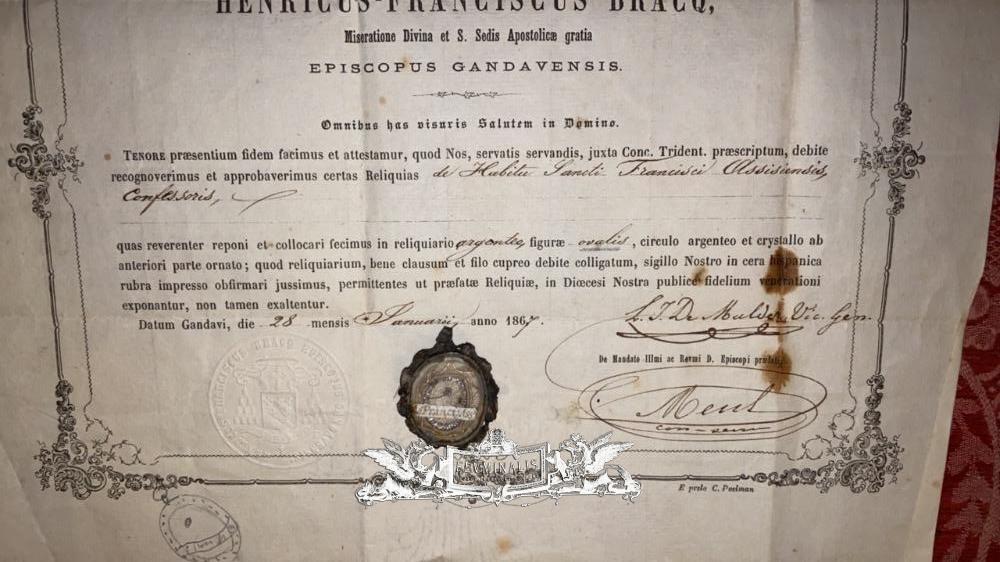 HENRICUS-FRANCISCUS BRACQ,
Miseratione Divina et S. Sedis Apostolicæ gratia
EPISCOPUS GANDAVENSIS.
Omnibus has visuris Salutem in Domino.
TENORE præsentium fidem facimus et attestamur, quod Nos, servatis servandis, juxta Conc. Trident. præscriptum, debite
recognoverimus et approbaverimus certas Reliquias de Habitu Sancti Francisci Assisiensis,
Confessoris,
quas reverenter reponi et collocari fecimus in reliquiario argenteo, figuræ ovalis, circulo argenteo et crystallo ab
anteriori parte ornato; quod reliquiarium, bene clausum et filo cupreo debite colligatum, sigillo Nostro in cera hispanica
rubra impresso obfirmari jussimus, permittentes ut præfatæ Reliquiæ, in Diœcesi Nostra publice fidelium venerationi
exponantur, non tamen exaltentur.
Datum Gandavi, die 28 mensis Januarii, anno 1867.
De Mulder, Vic. Gen.
De Mandato Illmi ac Revmi D. Episcopi præfati,
E prelo C. Poelman